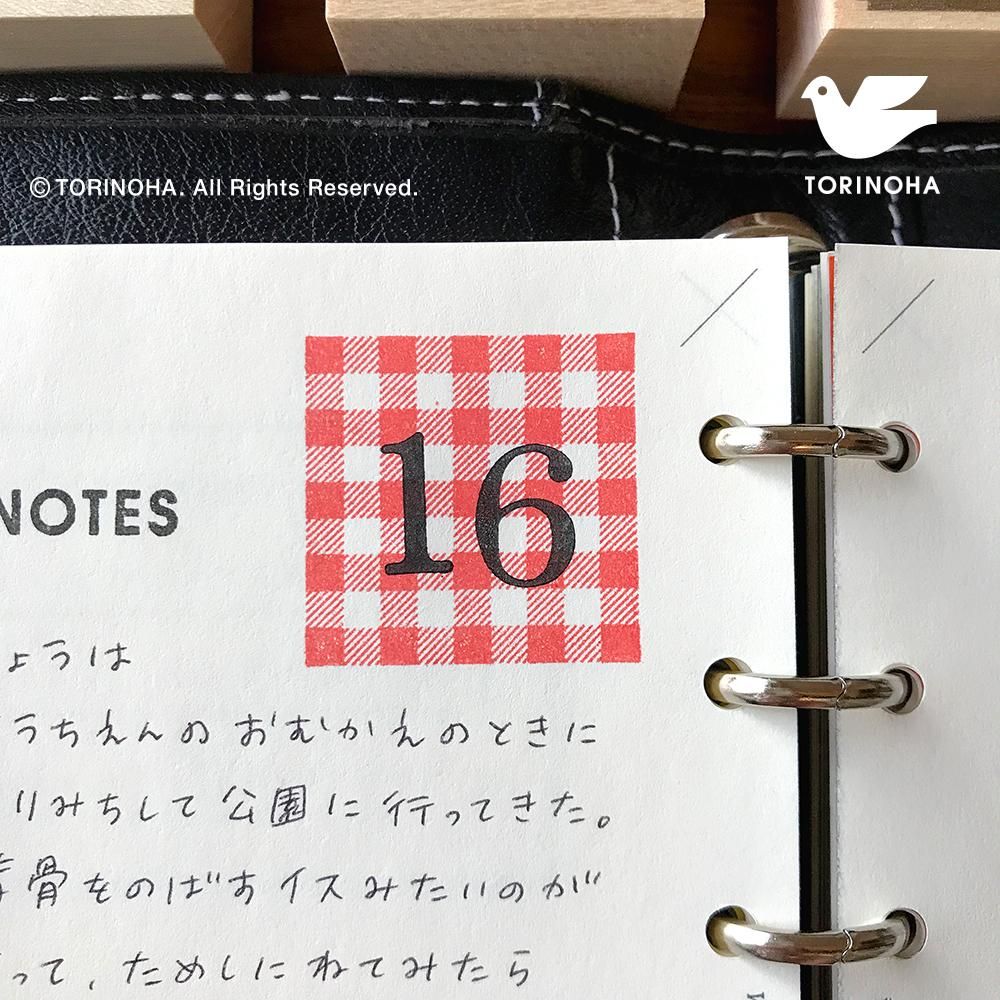 © TORINOHA. All Rights Reserved.
TORINOHA
16
NOTES
ょうは
うちえんのおむかえのときに
りみちして公園に行ってきた。
骨をのばすイスみたいのが
って、ためしにねてみたら